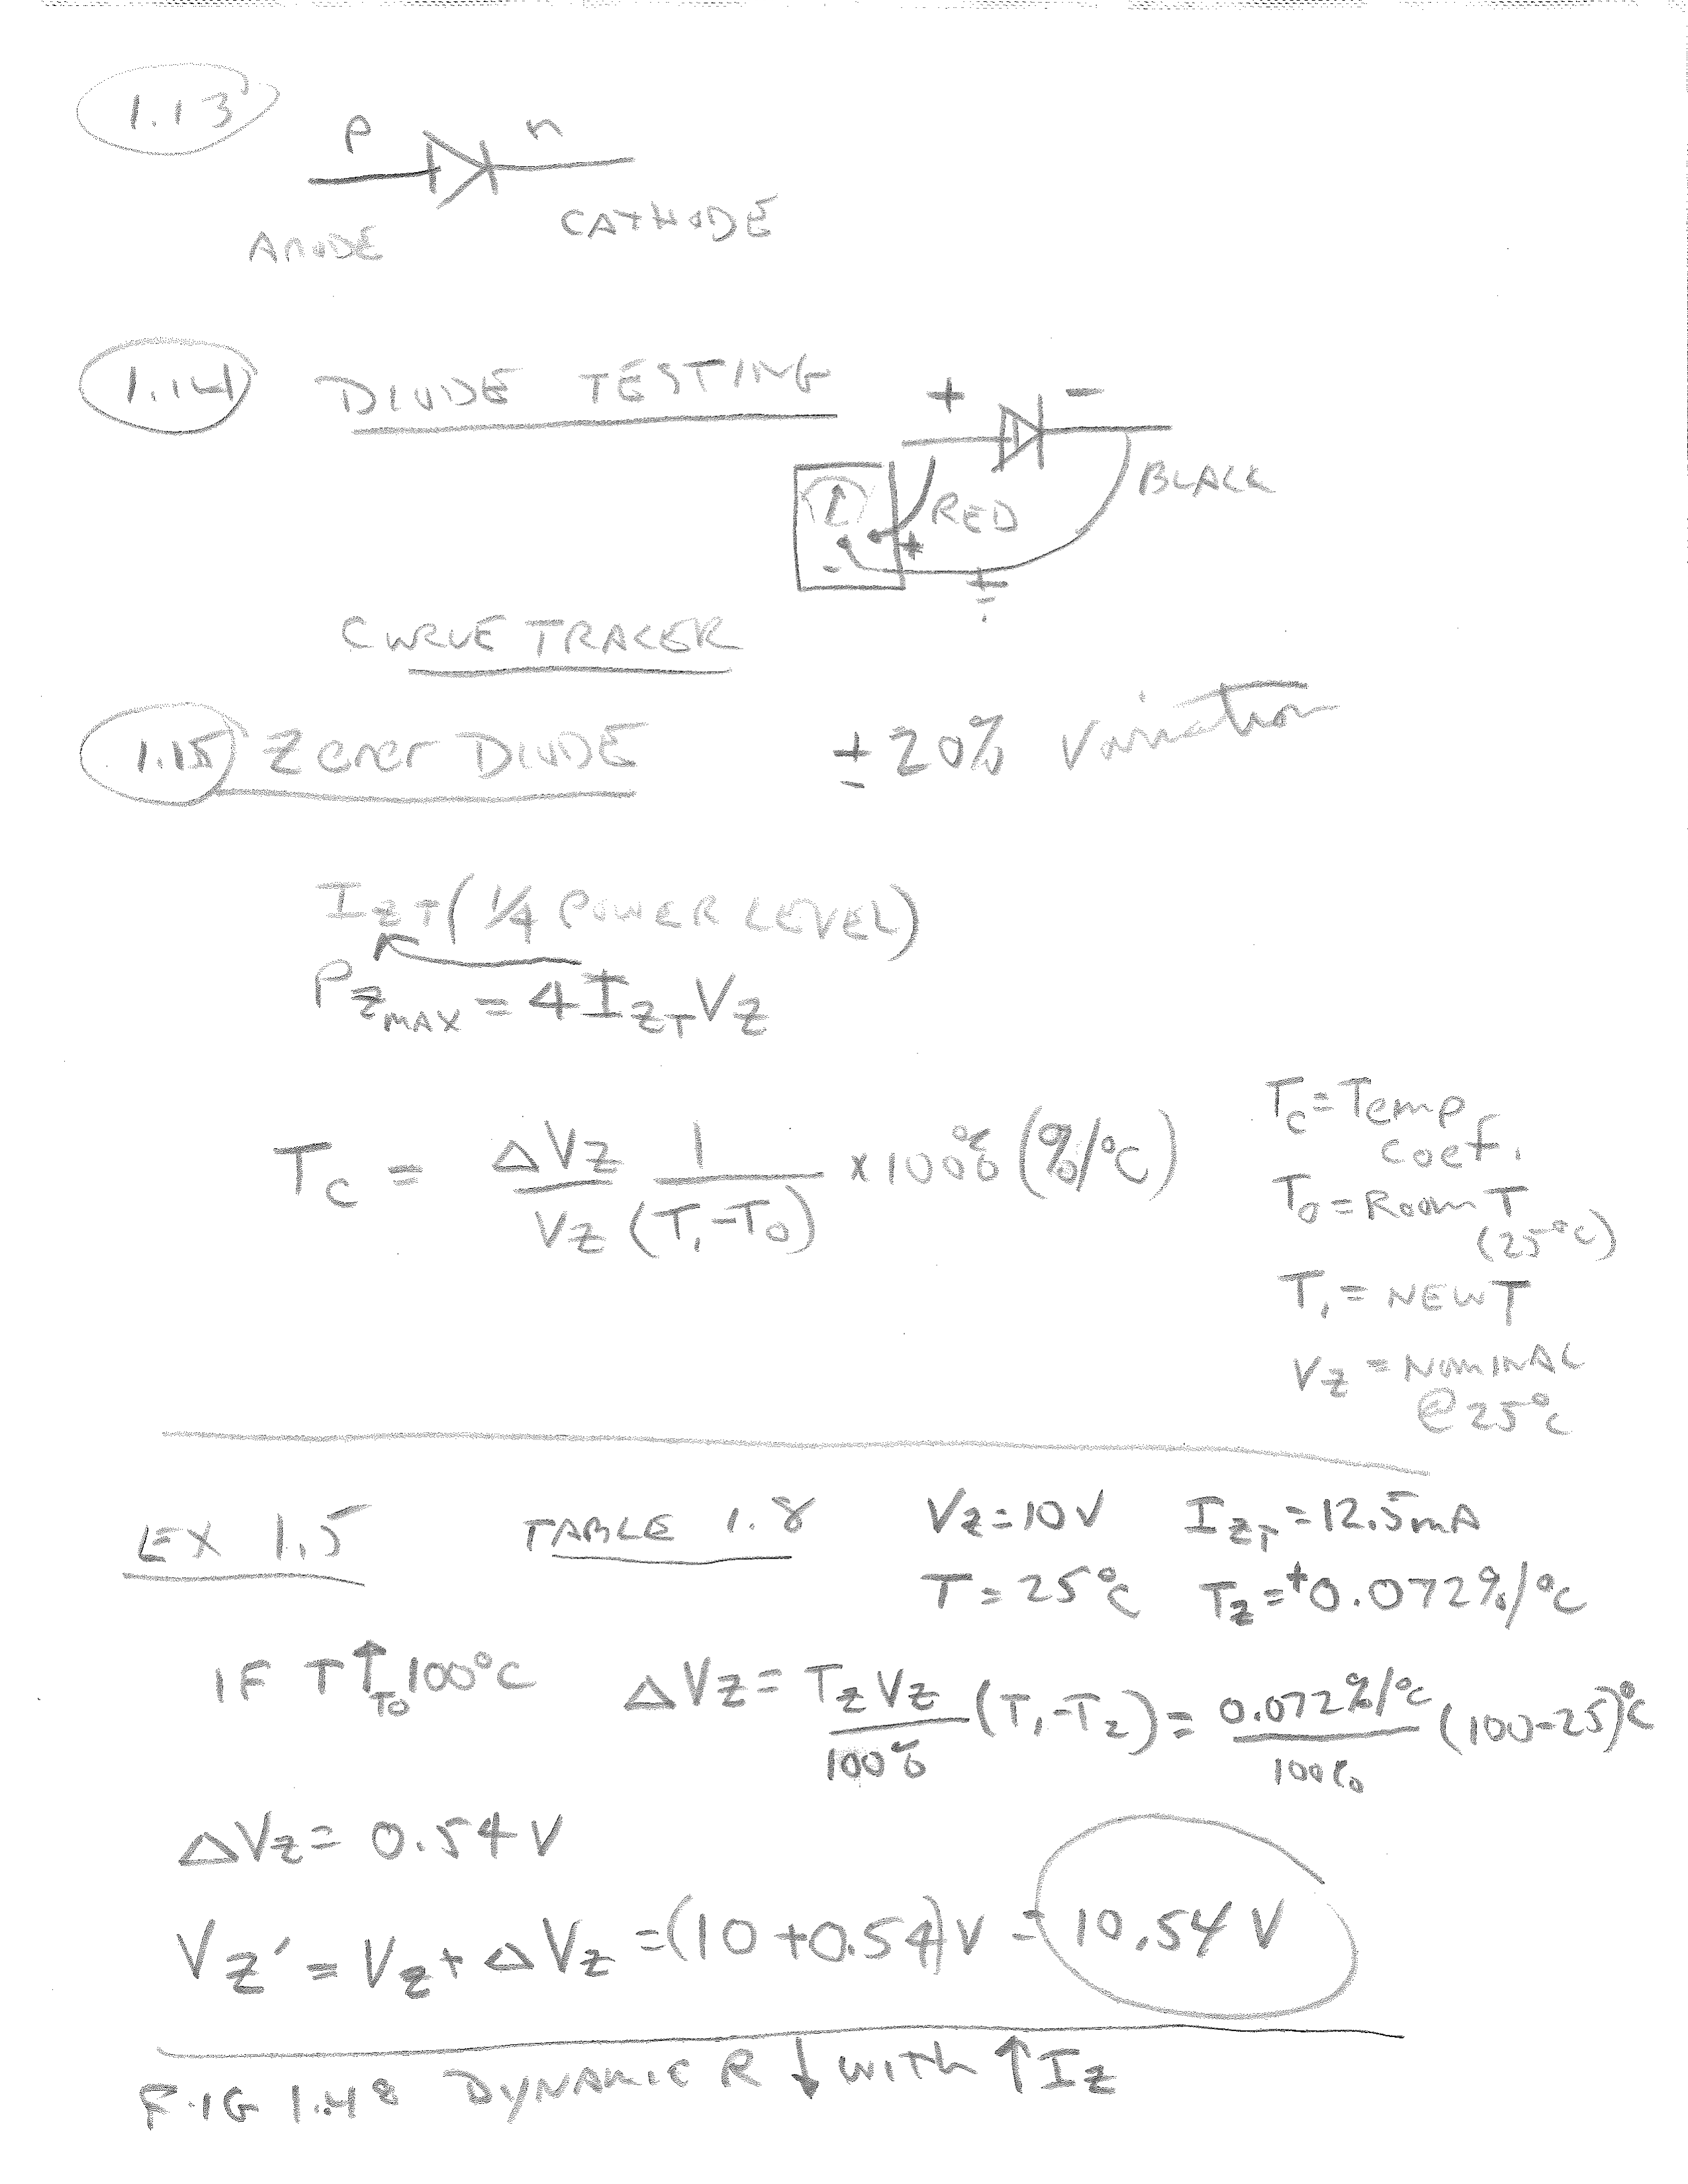 1.13
P n
ANODE CATHODE
1.14 DIODE TESTING
+ -
RED BLACK
+
-
CURVE TRACER
1.15 Zener DIODE ± 20% Variation
I_ZT (1/4 POWER LEVEL)
P_ZMAX = 4 I_ZT V_Z
T_C = ΔV_Z/V_Z 1/(T_1-T_0) x 100% (%/°C)
T_C = Temp Coef.
T_0 = Room T (25°C)
T_1 = NEW T
V_Z = NOMINAL @ 25°C
EX 1.5 TABLE 1.8 V_Z = 10V I_ZT = 12.5mA
T = 25°C T_Z = +0.072%/°C
IF T ↑ TO 100°C ΔV_Z = T_Z V_Z/100% (T_1-T_2) = 0.072%/°C/100% (100-25)°C
ΔV_Z = 0.54 V
V_Z' = V_Z + ΔV_Z = (10 + 0.54)V = 10.54 V
FIG 1.48 DYNAMIC R ↓ WITH ↑ I_Z